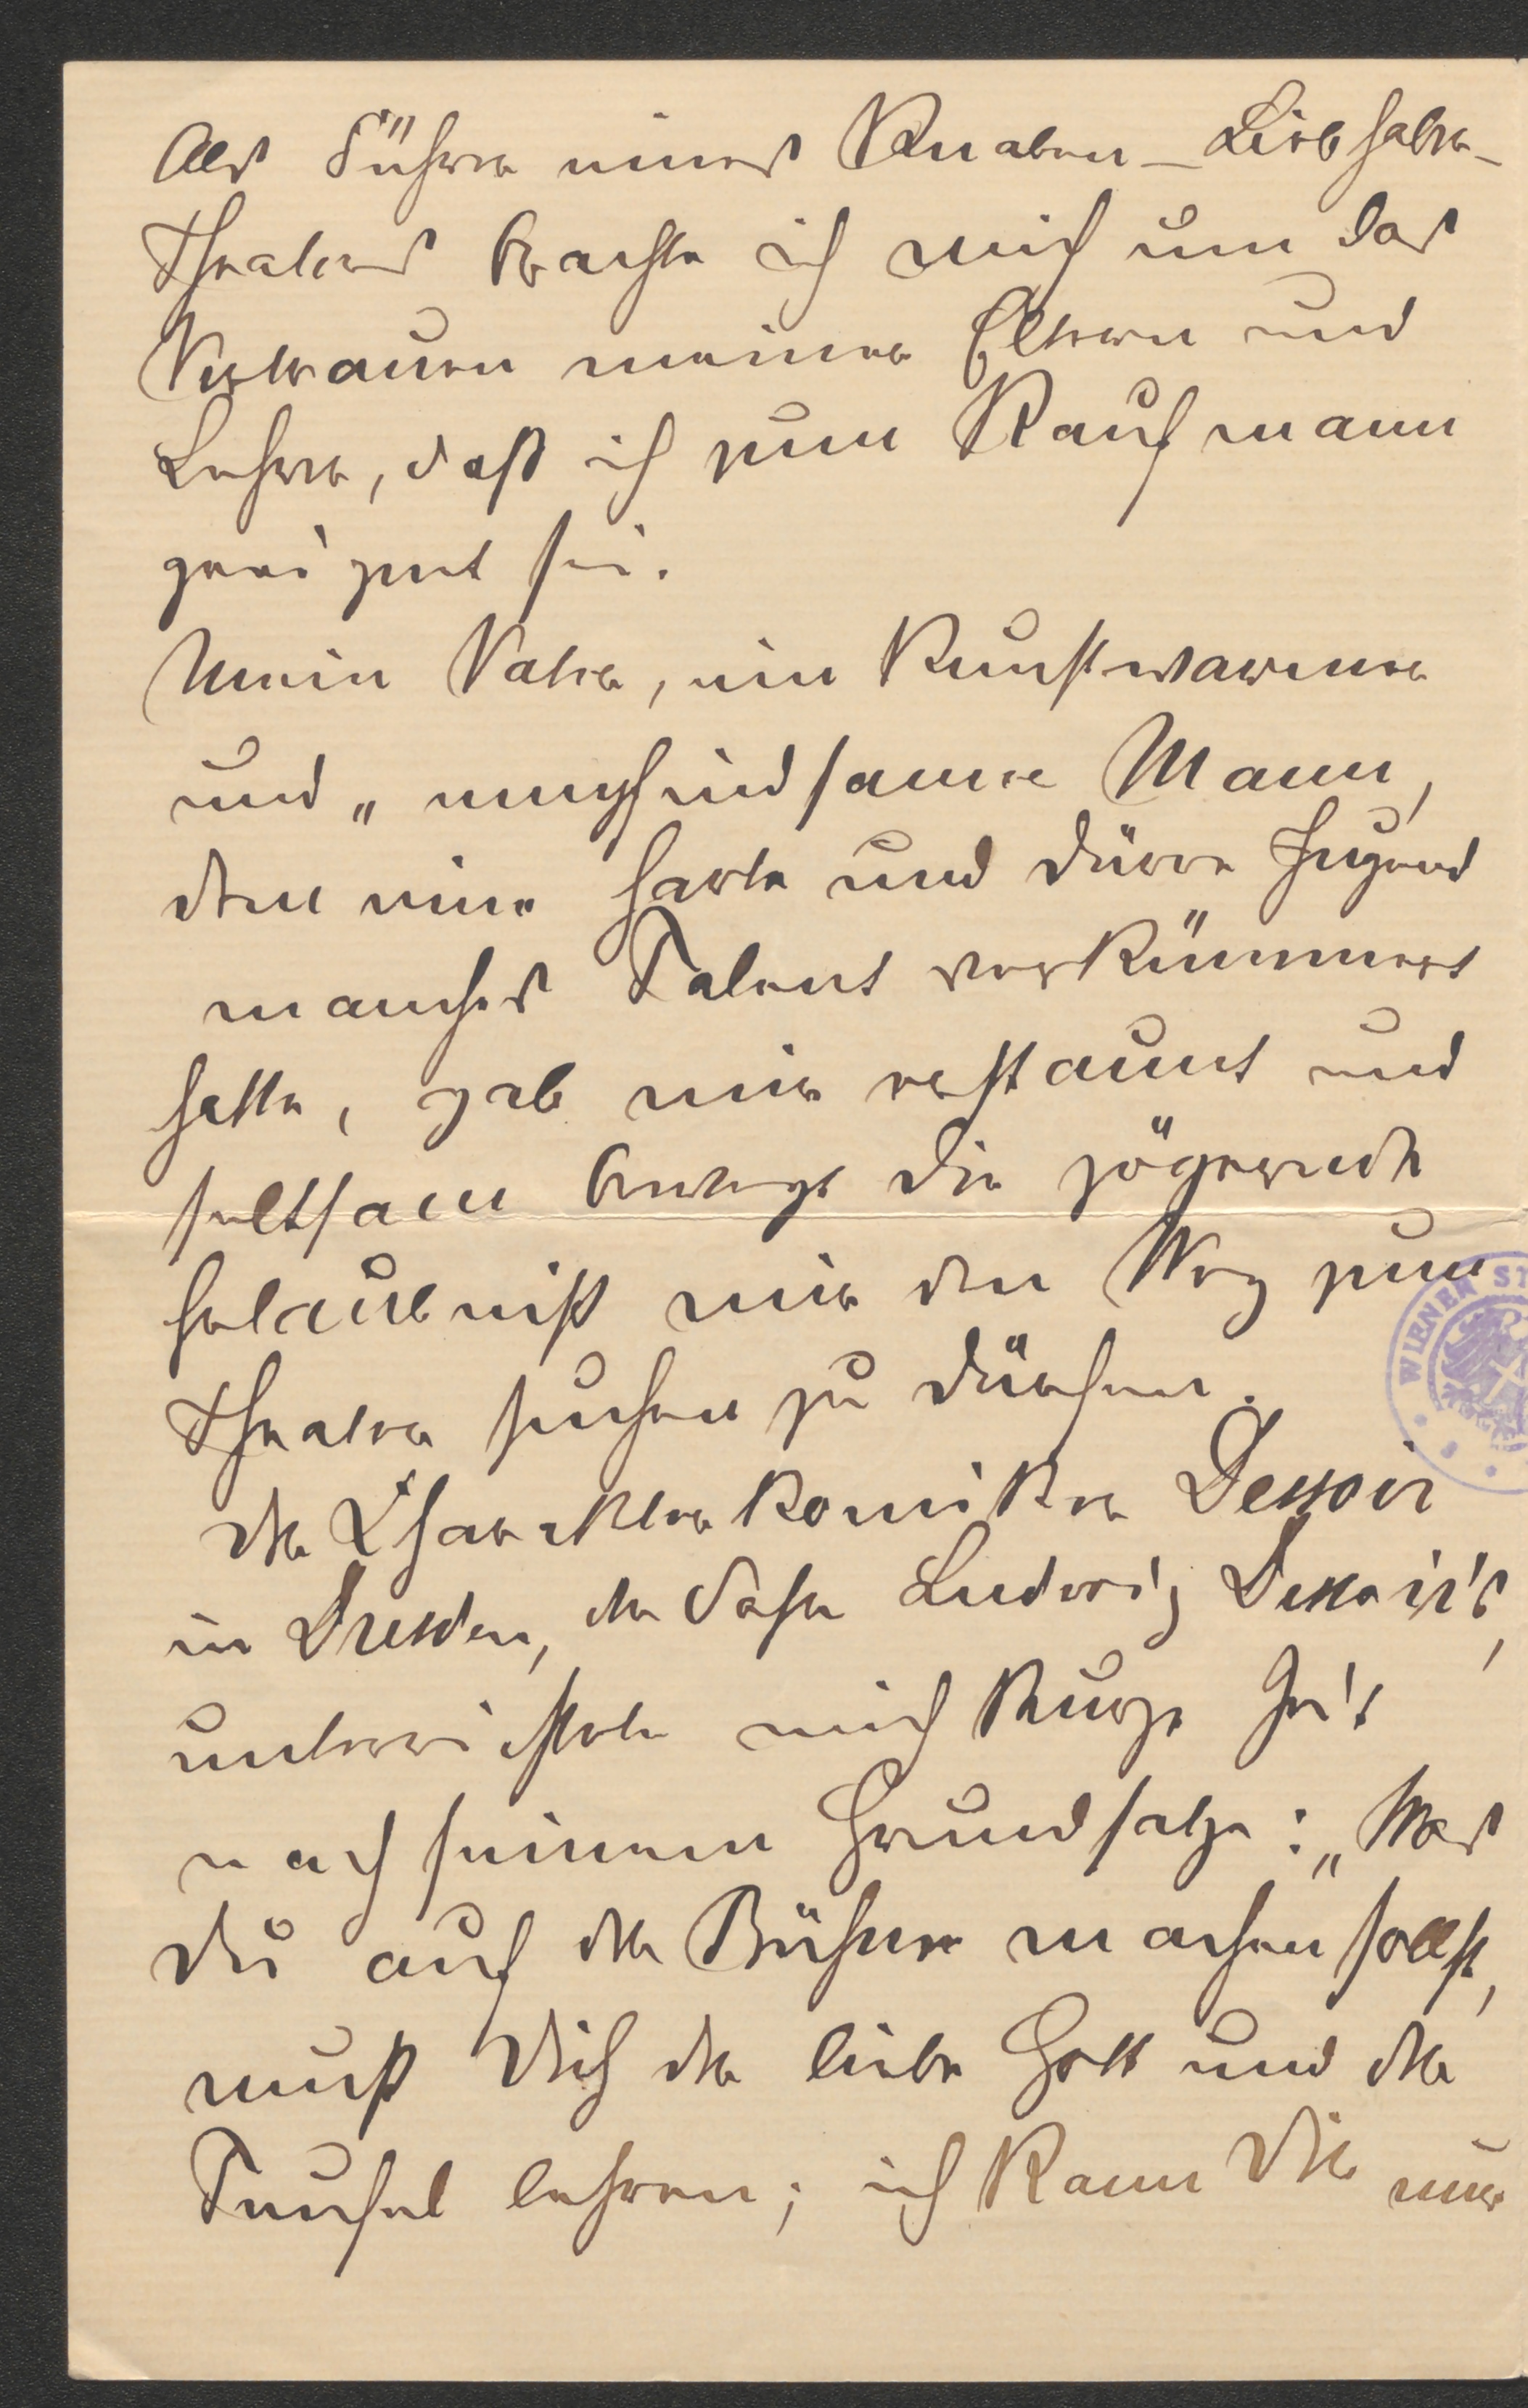 Als Führer eines Knaben-Liebhaber-
Theaters brachte ich mich um das
Vertrauen meiner Eltern und
Lehrer, daß ich zum Kaufmann
geeignet sei.
Mein Vater, ein Kunstwarmer
und „empfindsamer Mann,
dem eine harte und dürre Jugend
manches Talent verkümmert
hatte, gab mir erstaunt und
seltsam bewegt die zögernde
Erlaubniß mir den Weg zum
Theater suchen zu dürfen.
Der Charakterkomiker Dessoir
in Dresden, der Sohn Ludwig Dessoir's,
unterrichtete mich kurze Zeit
nach seinem Grundsatze: „Was
Du auf der Bühne machen sollst,
muß Dich der liebe Gott und der
Teufel lehren; ich kann Dir nur
WIENER ST